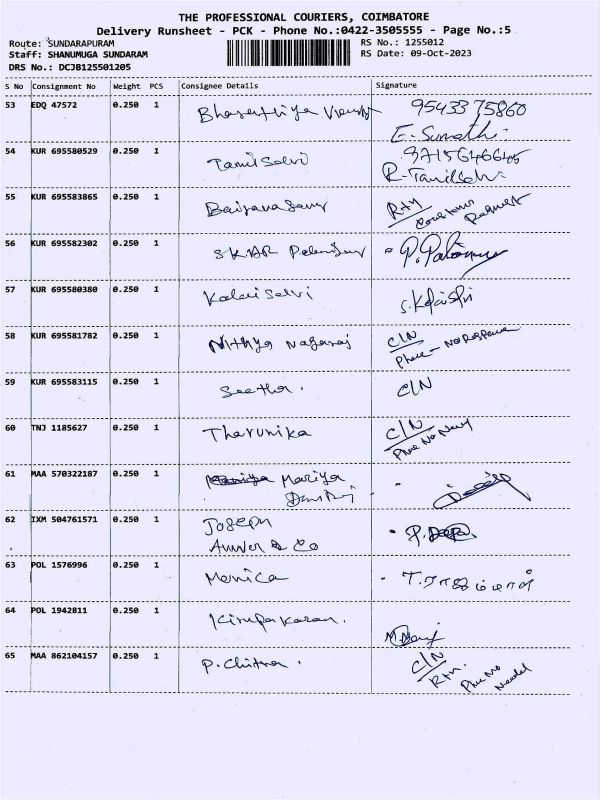 THE PROFESSIONAL COURIERS, COIMBATORE
Delivery Runsheet - PCK - Phone No.:0422-3505555 - Page No.:5
Route: SUNDARAPURAM
RS No.: 1255012
Staff: SHANUMUGA SUNDARAM
RS Date: 09-Oct-2023
DRS No.: DCJB125501205
S No Consignment No Weight PCS Consignee Details Signature
53 EDQ 47572 0.250 1 9543375860
E. Sumathi
54 KUR 695580529 0.250 1 Tamil Selvi
R-Tamilselvi
55 KUR 695583865 0.250 1 R+n
Request
56 KUR 695582302 0.250 1 SKAR
57 KUR 695580380 0.250 1 Kalai Selvi
58 KUR 695581782 0.250 1 Nithya Nagaraj C/N
Phone - No Response
59 KUR 695583115 0.250 1 Seetha. C/N
60 TNJ 1185627 0.250 1 Tharunika C/N
Phone No Need
61 MAA 570322187 0.250 1 Mariya
62 IXM 504761571 0.250 1 Joseph
& Co
63 POL 1576996 0.250 1 Monica
64 POL 1942811 0.250 1 Kirupakaran.
65 MAA 862104157 0.250 1 P. Chitra. C/N
R+n.
Phone No
Needed